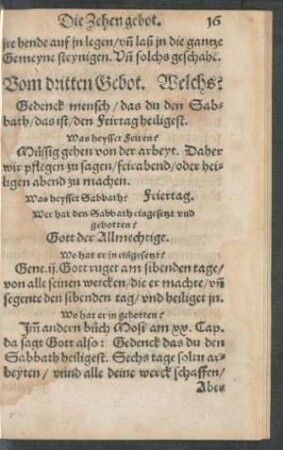 Die Zehen gebot. 16
jre hende auf jn legen/vñ laß jn die gantze
Gemeyne steynigen. Vñ solchs geschahe.
Vom dritten Gebot. Welchs?
Gedenck mensch/das du den Sab-
bath/das ist/den Feirtag heiligest.
Was heysset Feiren?
Müssig gehen von der arbeyt. Daher
wir pflegen zu sagen/feirabend/oder hei-
ligen abend zu machen.
Was heysset Sabbath? Feiertag.
Wer hat den Sabbath eingesetzt vnd
gebotten?
Gott der Allmechtige.
Wo hat er in eingesetzt?
Gene.ij. Gott ruget am sibenden tage/
von alle seinen wercken/die er machte/vñ
segente den sibenden tag/vnd heiliget jn.
Wo hat er in gebotten?
Jm andern bůch Mosi am xx. Cap.
da sagt Gott also: Gedenck das du den
Sabbath heiligest. Sechs tage soltu ar-
beyten/vnnd alle deine werck schaffen/
Aber